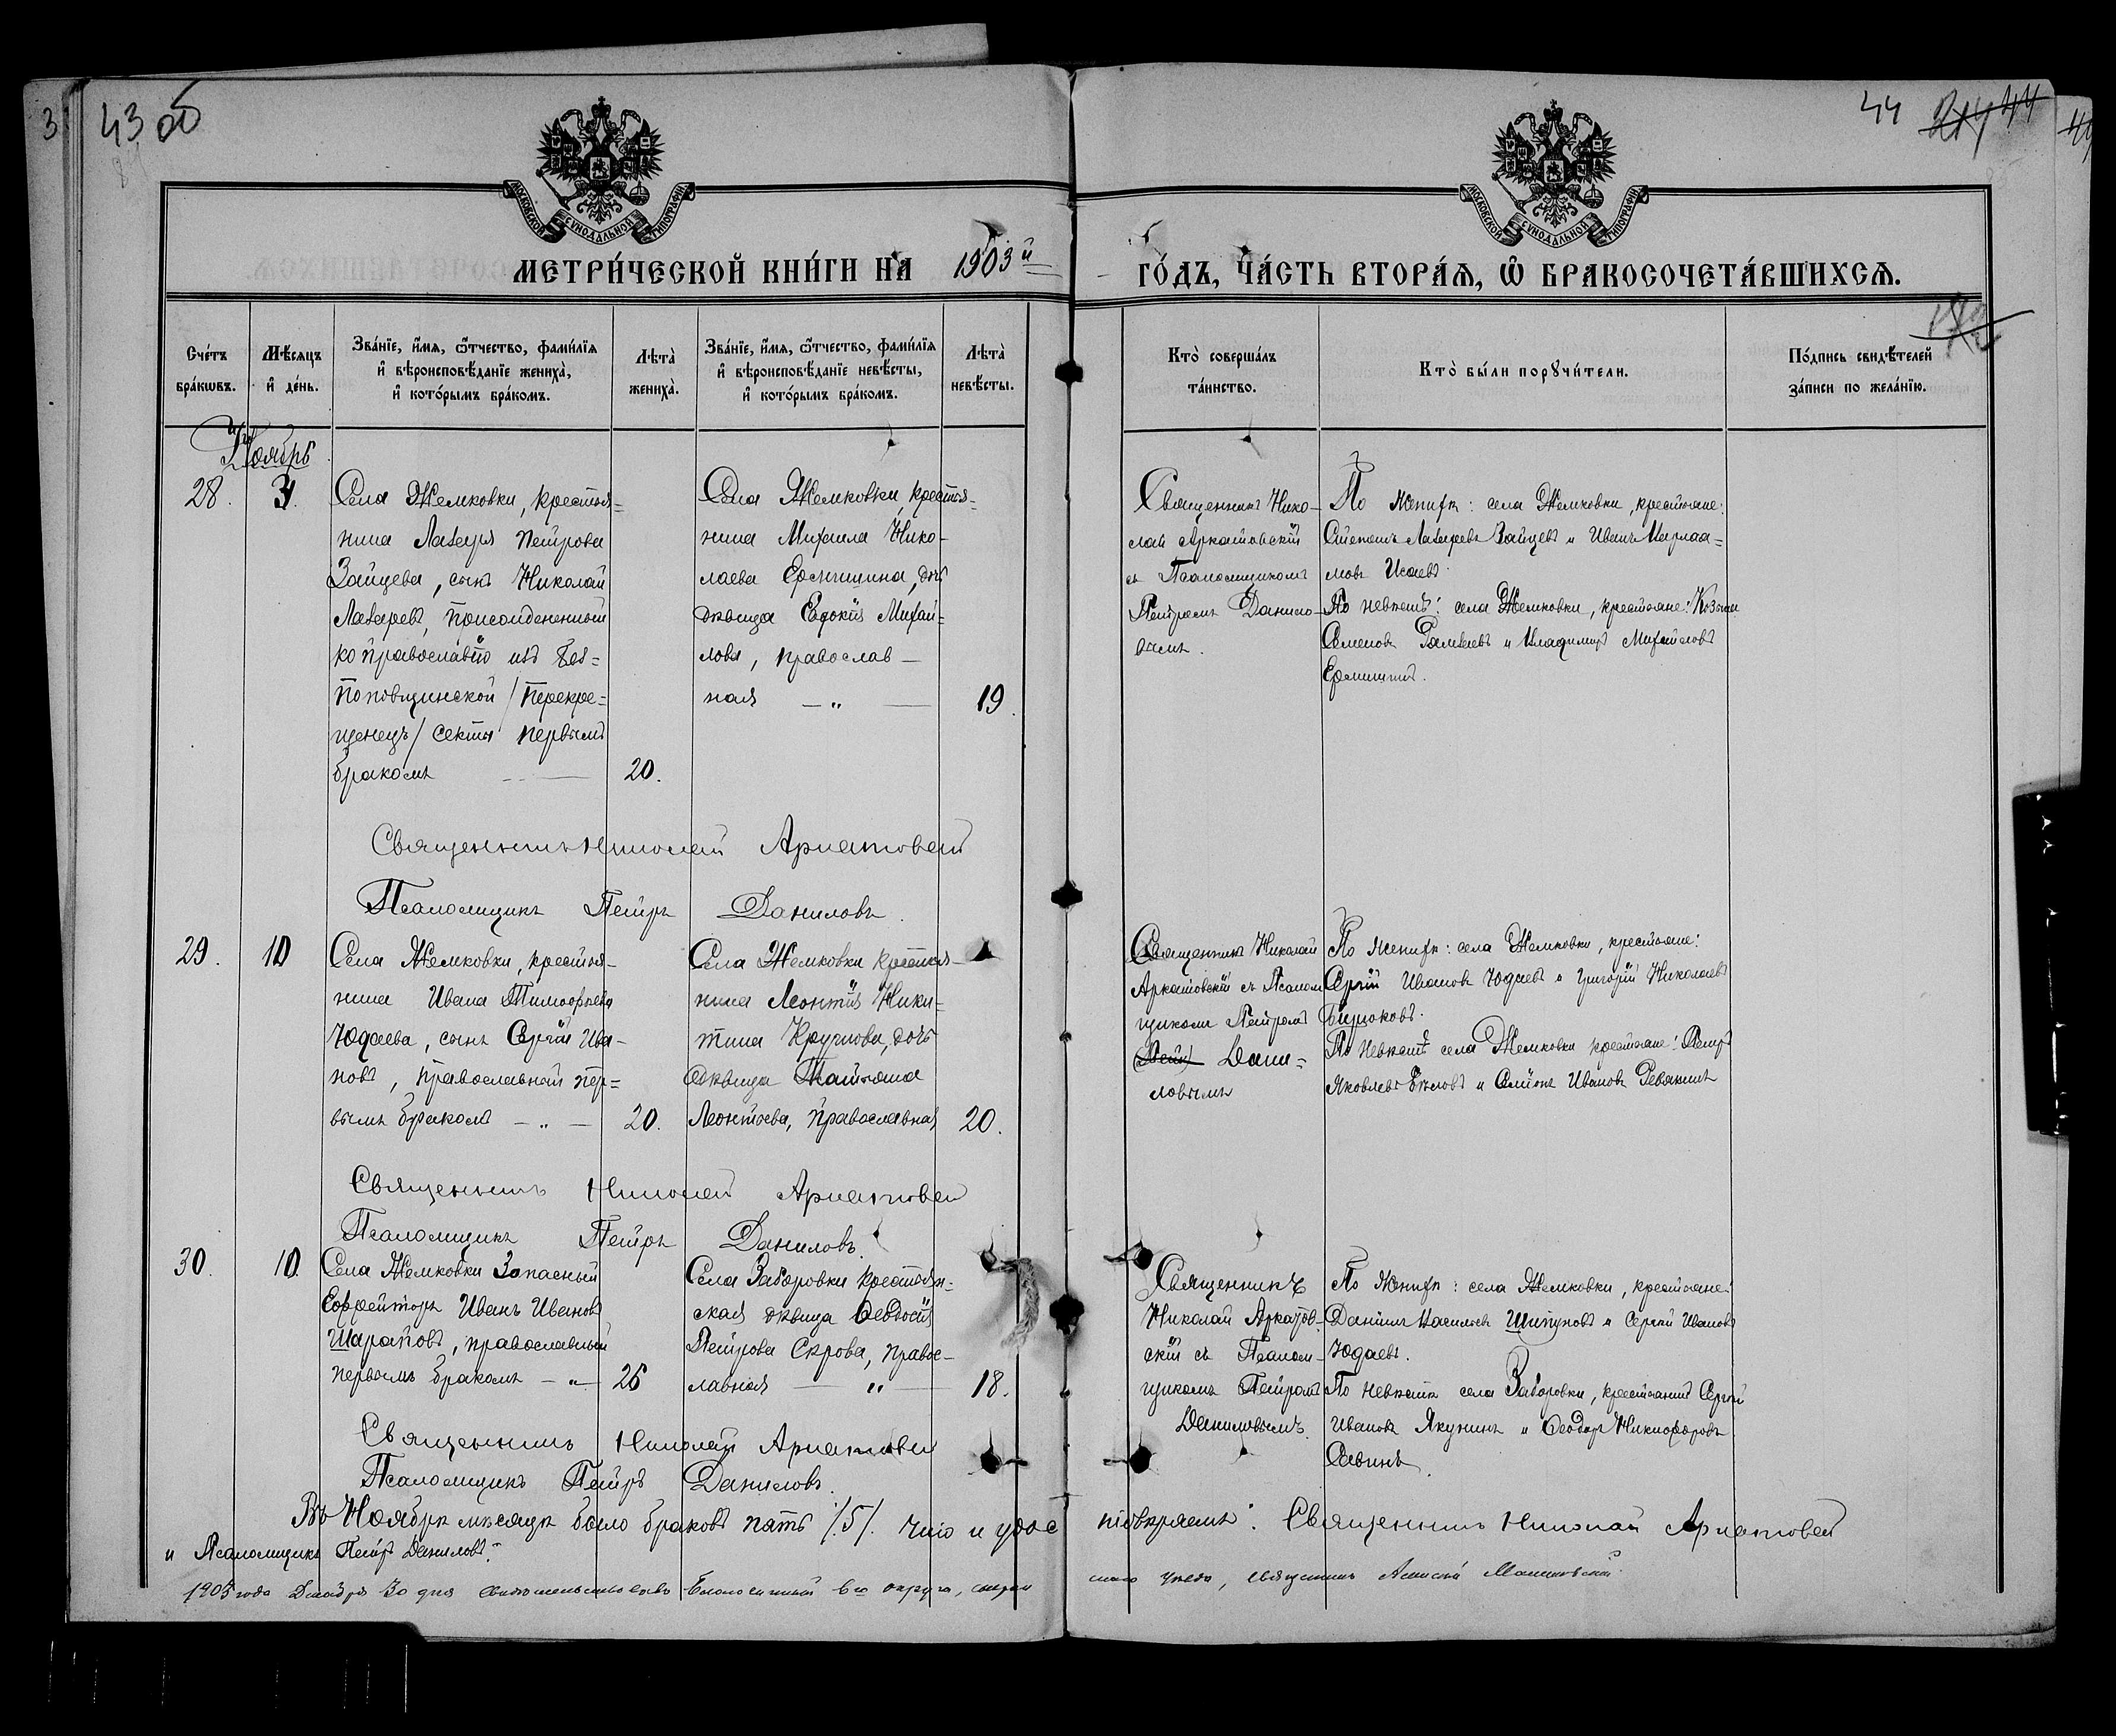 3
43 об
44
МОСКОВСКОЙ СѴНОДАЛЬНОЙ ТИПОГРАФІИ
МОСКОВСКОЙ СѴНОДАЛЬНОЙ ТИПОГРАФІИ
МЕТРИ́ЧЕСКОЙ КНИ́ГИ НА 1903й
ГО́ДЪ, ЧА́СТЬ ВТОРА́Я, Ѽ БРАКОСОЧЕТА́ВШИХСЯ.
Сче́тъ бра́кѡвъ.
Мѣ́сяцъ и҆ де́нь.
Зва́нїе, и҆́мя, ѻ҆́тчество, фами́лїя и҆ вѣроисповѣ́данїе жениха̀, и҆ кото́рымъ бра́комъ.
Лѣта̀ жениха̀.
Зва́нїе, и҆́мя, ѻ҆́тчество, фами́лїя и҆ вѣроисповѣ́данїе невѣ́сты, и҆ кото́рымъ бра́комъ.
Лѣта̀ невѣ́сты.
Кто̀ соверша́лъ та́инство.
Кто̀ бы́ли порꙋчи́тели.
По́дпись свидѣ́телей за́писи по жела́нїю.
Ноябрь
28.
Села Жемковки, крестья=
нина Лазаря Петрова
Зайцева, сынъ Николай
Лазаревъ, присоиденный
ко православію изъ Без=
поповщинской /перекре=
щенецъ/ секты первымъ
бракомъ
20.
Села Жемковки, крестья=
нина Михаила Нико-
лаева Ермишина, дочь
дѣвица Евдокія Михай=
лова, православ-
ная — „ —
19.
Священникъ Нико-
лай Аркатовскій
съ Псаломщикомъ
Петромъ Данило-
вымъ.
По женихѣ: села Жемковки, крестьяне:
Степанъ Лазаревъ Зайцевъ и Иванъ
Исаевъ.
По невѣстѣ: села Жемковки, крестьяне: Козьма
Семеновъ и Владимиръ Михайловъ
Ермишинъ.
Священникъ Николай Аркатовскій
Псаломщикъ Петръ Даниловъ.
29.
10
Села Жемковки, крестья-
нина Ивана Тимофеева
Юдаева, сынъ Сергій Ива-
новъ, православный пер=
вымъ бракомъ — „ —
20.
Села Жемковки крестья-
нина Леонтія Ники-
тина Круглова, дочь
дѣвица Татьяна
Леонтьева, православная
20.
Священникъ Николай
Аркатовскій съ Псалом
щикомъ Петромъ
Дани=
ловымъ
По женихѣ: села Жемковки, крестьяне:
Сергій Ивановъ Юдаевъ и Григорій Николаевъ
Бирюковъ.
По невѣстѣ села Жемковки крестьяне: Петръ
Яковлевъ Бѣловъ и Симіонъ Ивановъ Ревякинъ
Священникъ Николай Аркатовскій
Псаломщикъ Петръ Даниловъ.
30.
10.
Села Жемковки Запасный
Ефрейторъ Иванъ Ивановъ
Шараповъ, православный
первымъ бракомъ — „ —
26
Села Заборовки крестьян-
ская дѣвица Ѳеодосія
Петрова Серова, право-
лавная — „ —
18.
Священникъ
Николай Аркатов-
скій съ Псалом-
щикомъ Петромъ
Даниловымъ.
По женихѣ: села Жемковки, крестьяне:
Даніилъ Васильевъ Шипуновъ и Сергій Ивановъ
Юдаевъ.
По невѣстѣ села Заборовки, крестьянинъ Сергей
Ивановъ Якунинъ и Ѳеодоръ Никифоровъ
Савинъ.
Священникъ Николай Аркатовскій
Псаломщикъ Петръ Даниловъ.
Въ Ноябрѣ мѣсяцѣ было браковъ пять /5/. что и удос
товѣряемъ: Священникъ Николай Аркатовскій
и Псаломщикъ Петръ Даниловъ.
1903 года Декабря 30 дня свидѣтельствовалъ Благочинный 6го округа,
уѣзда, священникъ Алексій